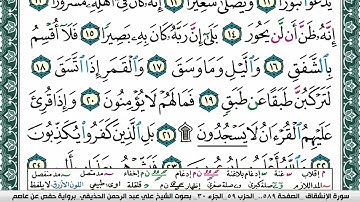 يَدْعُوا۟ ثُبُورًا ١١ وَيَصْلَىٰ سَعِيرًا ١٢ إِنَّهُۥ كَانَ فِىٓ أَهْلِهِۦ مَسْرُورًا ١٣
إِنَّهُۥ ظَنَّ أَن لَّن يَحُورَ ١٤ بَلَىٰٓ إِنَّ رَبَّهُۥ كَانَ بِهِۦ بَصِيرًا ١٥ فَلَآ أُقْسِمُ
بِٱلشَّفَقِ ١٦ وَٱلَّيْلِ وَمَا وَسَقَ ١٧ وَٱلْقَمَرِ إِذَا ٱتَّسَقَ ١٨
لَتَرْكَبُنَّ طَبَقًا عَن طَبَقٍ ١٩ فَمَا لَهُمْ لَا يُؤْمِنُونَ ٢٠ وَإِذَا قُرِئَ
عَلَيْهِمُ ٱلْقُرْءَانُ لَا يَسْجُدُونَ ۩ ٢١ بَلِ ٱلَّذِينَ كَفَرُوا۟ يُكَذِّبُونَ
سورة الإنشقاق - الصفحة ٥٨٩ - الحزب ٥٩ - الجزء ٣٠ - بصوت الشيخ علي عبد الرحمن الحذيفي - برواية حفص عن عاصم